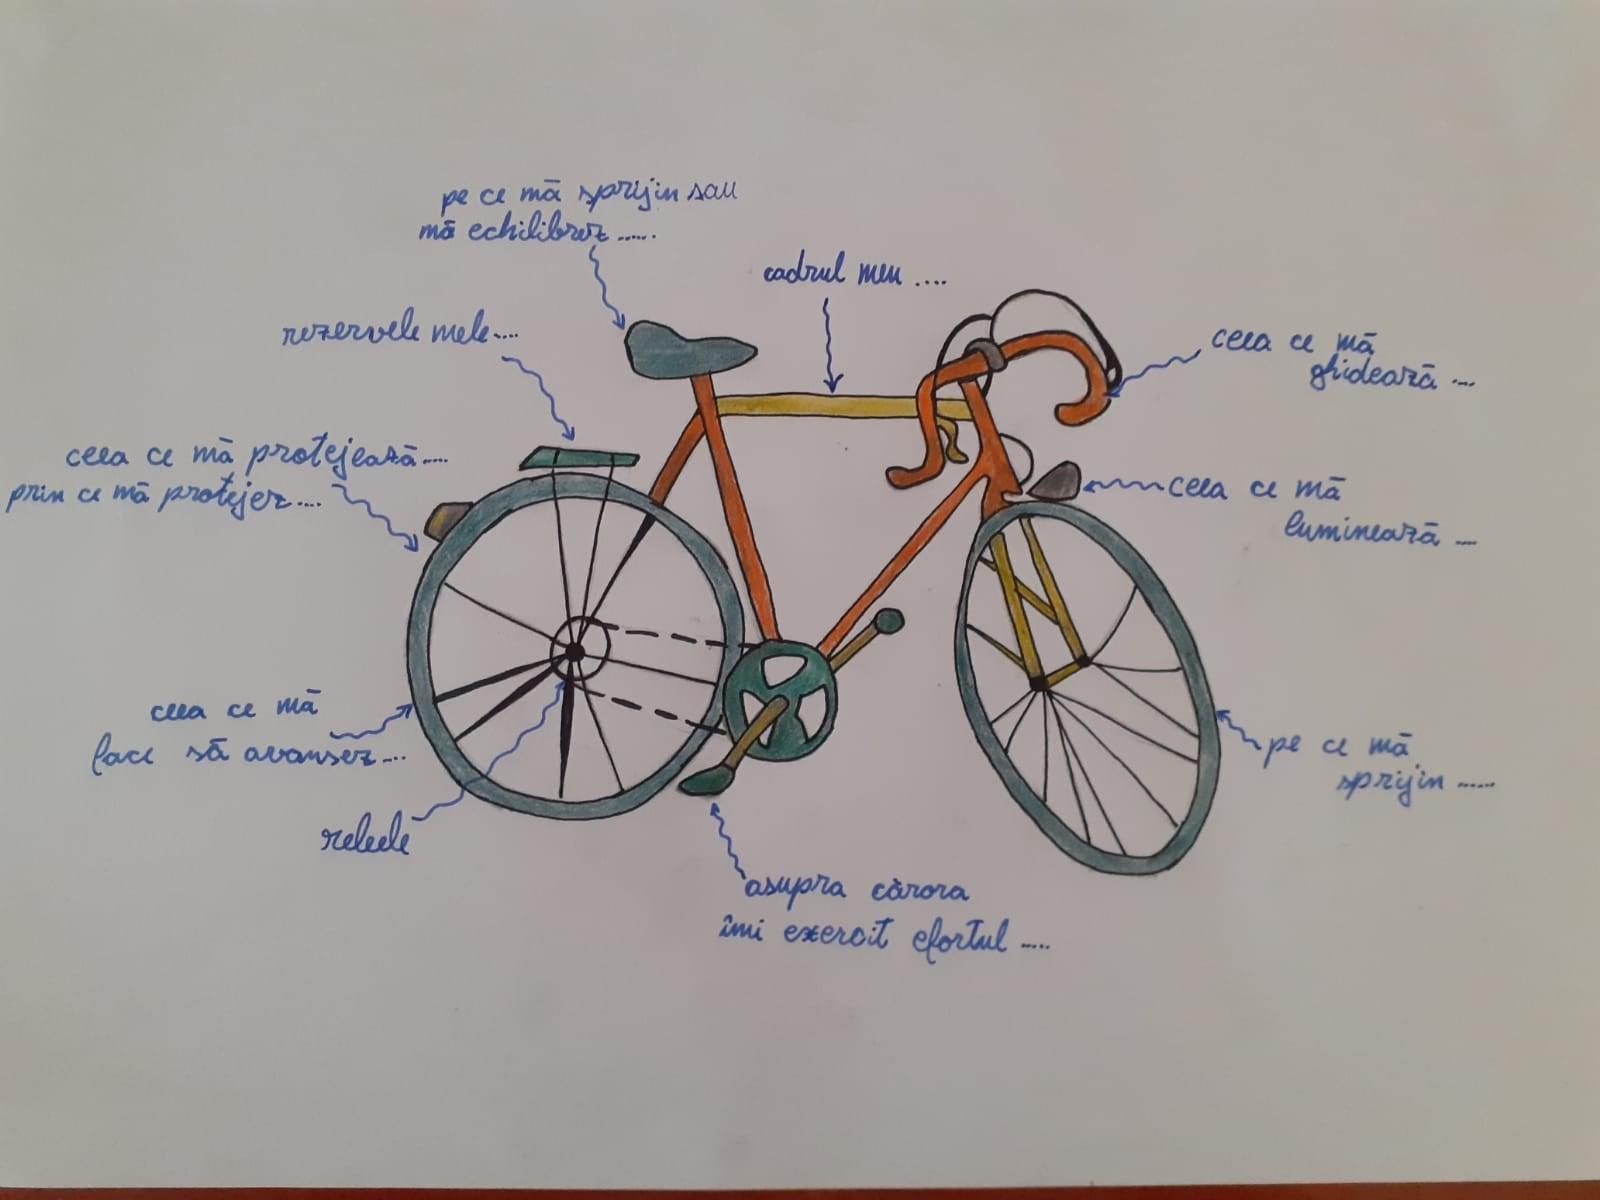 pe ce mă sprijin sau
mă echilibrez......
cadrul meu ....
rezervele mele....
ceea ce mă
ghidează ....
ceea ce mă protejează....
prin ce mă protejez....
ceea ce mă
luminează ....
ceea ce mă
face să avansez....
pe ce mă
sprijin ......
releele
asupra cărora
îmi exercit efortul .....